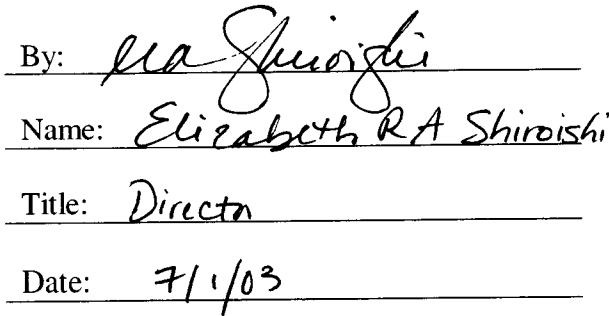 By: era Shiroishi
Name: Elizabeth R A Shiroishi
Title: Director
Date: 7/1/03